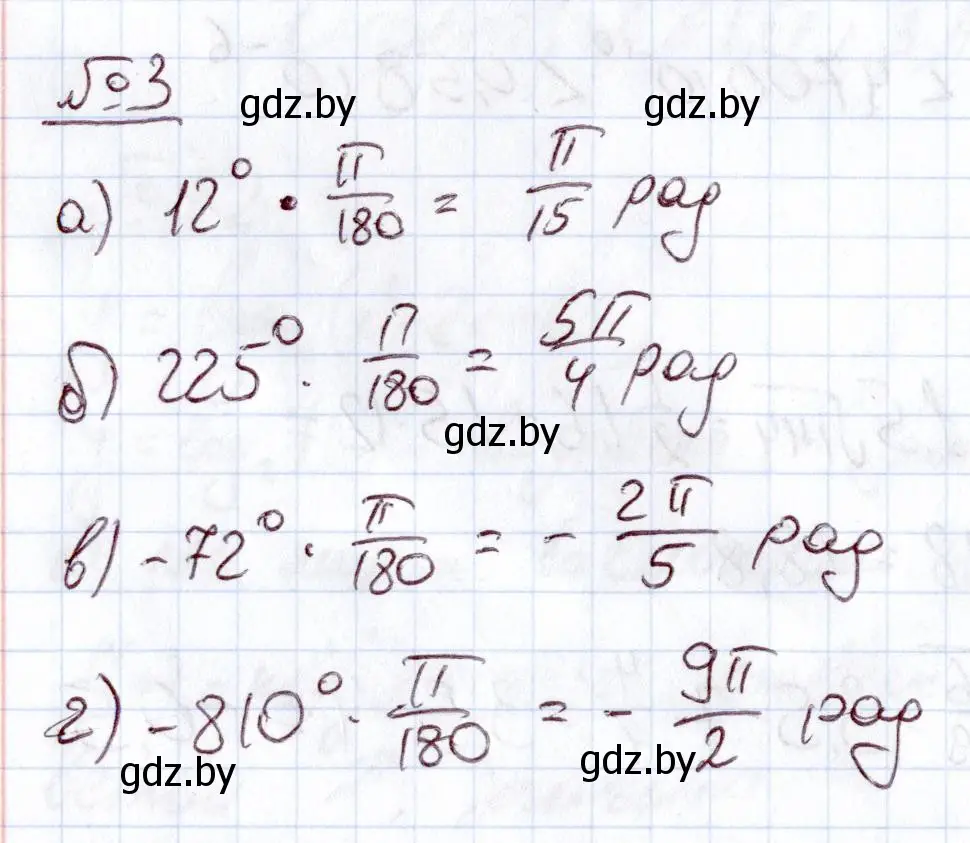 №3
gdz.by gdz.by
а) 12° · π/180 = π/15 рад
б) 225° · π/180 = 5π/4 рад
gdz.by
в) -72° · π/180 = - 2π/5 рад
г) -810° · π/180 = - 9π/2 рад
gdz.by gdz.by